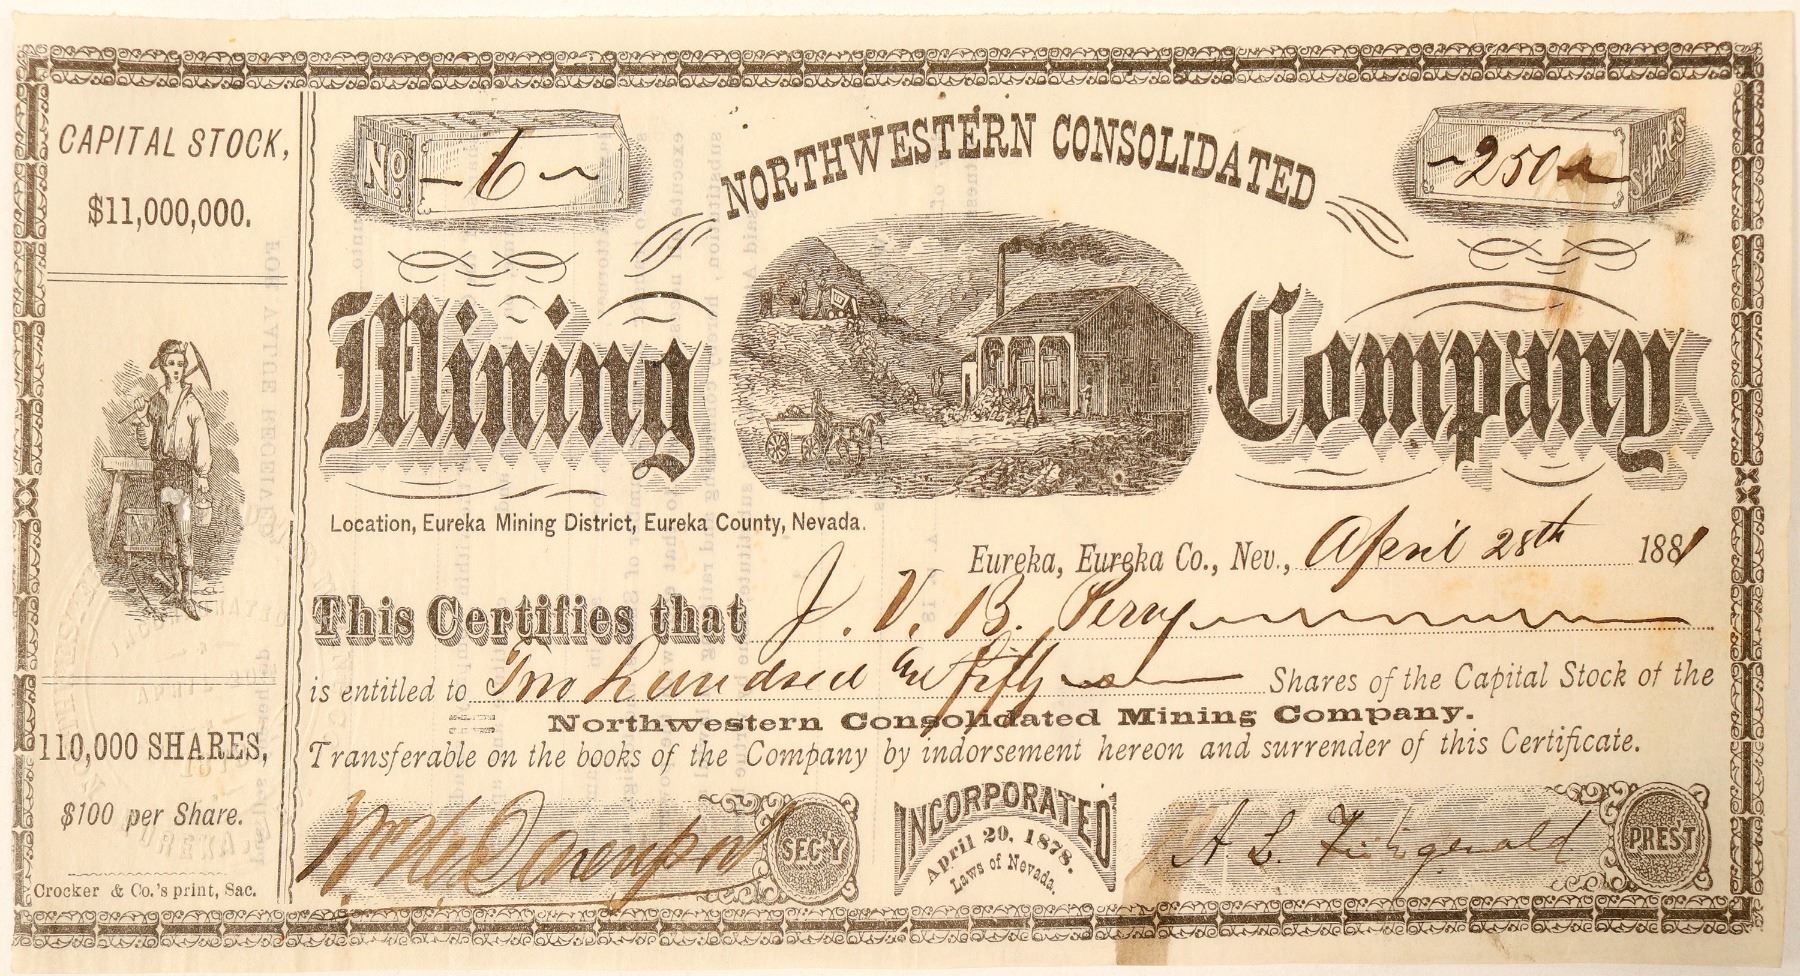 CAPITAL STOCK,
$11,000,000.
110,000 SHARES,
$100 per Share.
Crocker & Co.'s print, Sac.
No. 6
250 SHARES
NORTHWESTERN CONSOLIDATED
Mining Company
Location, Eureka Mining District, Eureka County, Nevada.
Eureka, Eureka Co., Nev., April 28th 1881
This Certifies that J. V. B. Perry
is entitled to Two hundred and fifty Shares of the Capital Stock of the
Northwestern Consolidated Mining Company.
Transferable on the books of the Company by indorsement hereon and surrender of this Certificate.
Davenport SEC'Y
INCORPORATED
April 20, 1878.
Laws of Nevada.
A L Fitzgerald PRES'T
FOR VALUE RECEIVED